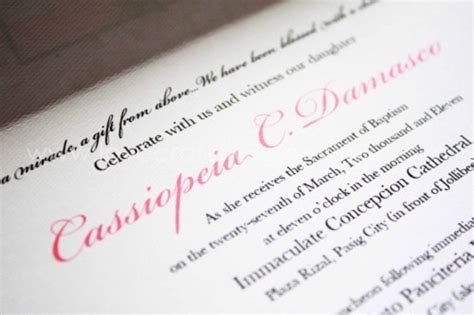 a miracle, a gift from above...We have been blessed with a
Celebrate with us and witness our daughter
Cassiopeia C. Damasco
As she receives the Sacrament of Baptism
on the twenty-seventh of March, Two thousand and Eleven
at eleven o'clock in the morning
Immaculate Concepcion Cathedral
Plaza Rizal, Pasig City (in front of Jollibee
luncheon following immediat
to Panciteria,